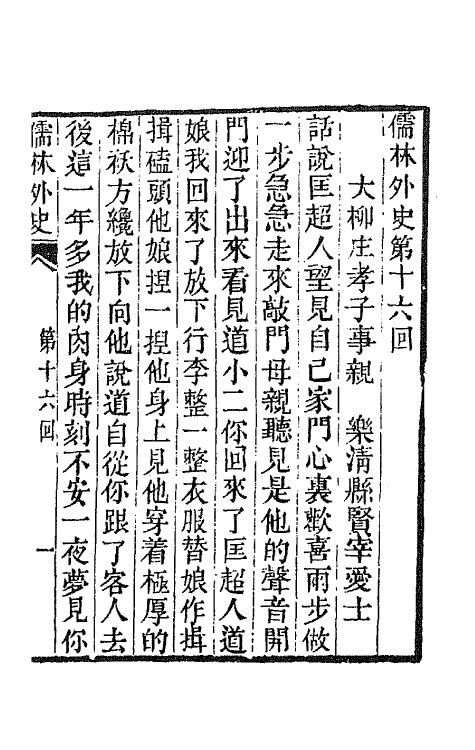 儒林外史第十六回
大柳庄孝子事親　樂清縣賢宰愛士
話說匡超人望見自己家門心裏歡喜兩步做
一步急急走來敲門母親聽見是他的聲音開
門迎了出來看見道小二你回來了匡超人道
娘我回來了放下行李整一整衣服替娘作揖
揖磕頭他娘捏一捏他身上見他穿着極厚的
棉袄方纔放下向他說道自從你跟了客人去
後這一年多我的肉身時刻不安一夜夢見你
儒林外史　第十六回　一